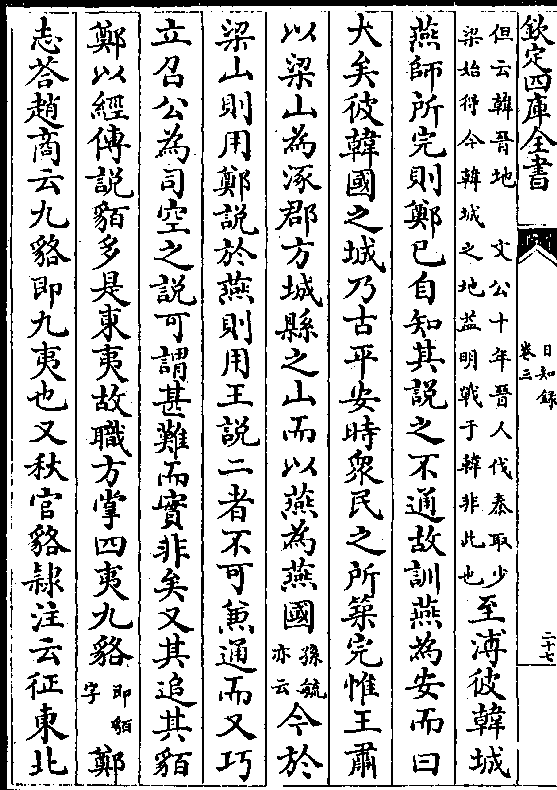 欽定四庫全書
日知録
卷三
二十七
但云韓晉地 文公十年晉人伐秦取少
梁始得今韓城之地益明戰于韓非此也
至溥彼韓城
燕師所完則鄭已自知其説之不通故訓燕為安而曰
大矣彼韓國之城乃古平安時衆民之所築完惟王肅
以梁山為涿郡方城縣之山而以燕為燕國
孫毓
亦云
今於
梁山則用鄭説於燕則用王説二者不可兼通而又巧
立召公為司空之説可謂甚難而實非矣又其追其貊
鄭以經傳説貊多是東夷故職方掌四夷九貉
即貊
字
鄭
志荅趙商云九貉即九夷也又秋官貉隸注云征東北